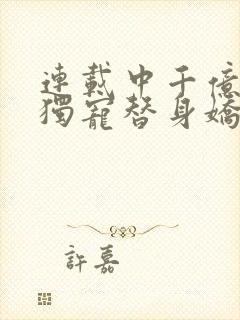 連載中千億
獨寵替身嬌
許嘉